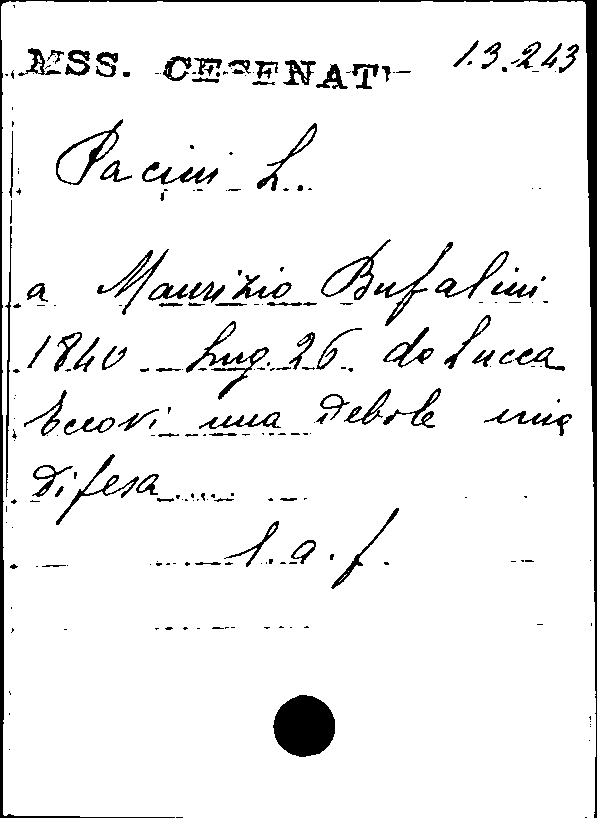 MSS. CESENATI 1.3.243
Pacini L.
a Maurizio Bufalini
1840 Lug. 26. da Lucca
Eccovi una debole mia
difesa......
l. a. f.